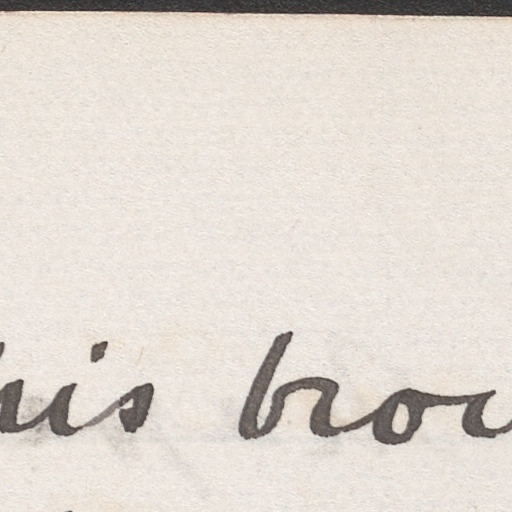 his bro